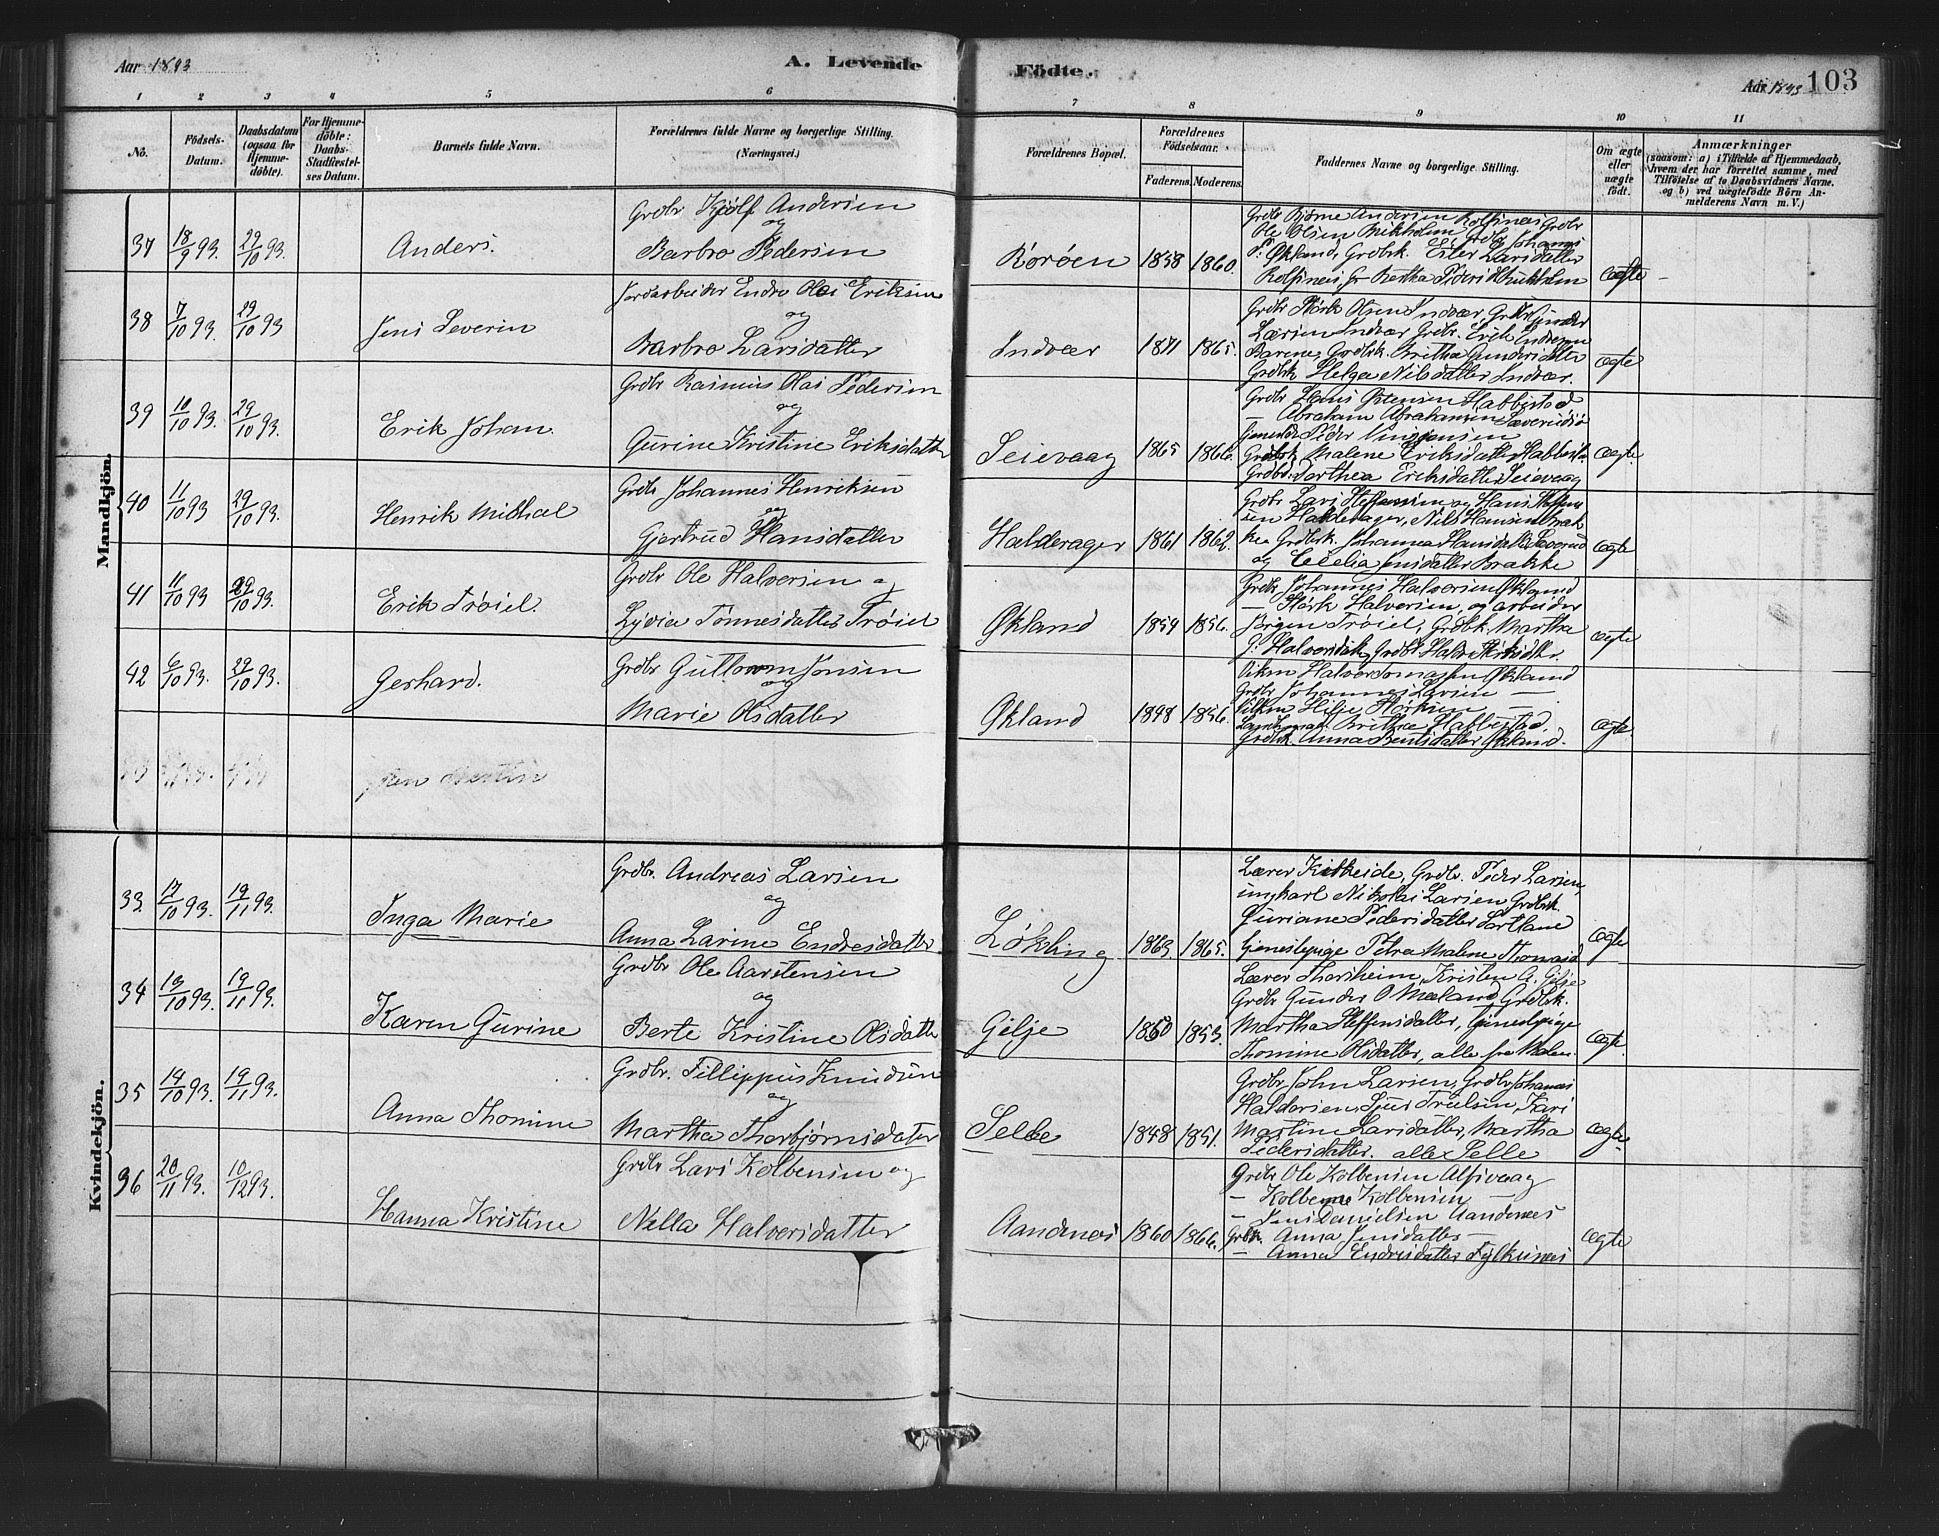 Aar 1893
A. Levende
Födte.
Aar 1893
103
1
2
3
4
5
6
7
8
9
10
11
No.
Födsels-
Datum.
Daabsdatum
(ogsaa for
Hjemme-
döbte).
For Hjemme-
döbte:
Daabs-
Stadfæstel-
ses Datum.
Barnets fulde Navn.
Forældrenes fulde Navne og borgerlige Stilling.
(Næringsvei.)
Forældrenes Bopæl.
Forældrenes
Födselsaar.
Faderens.
Moderens.
Faddernes Navne og borgerlige Stilling.
Om ægte
eller
uægte
födt.
Anmærkninger
(saasom: a) i Tilfælde af Hjemmedaab,
hvem der har forrettet samme, med
Tilföielse af to Daabsvidners Navne,
og b) ved uægtefödte Börn An-
melderens Navn m. V.)
Mandkjön.
37
18/9 93.
29/10 93.
Anders.
Grdbr Kjölf Andersen
og
Barbro Pedersen
Rorøen
1858
1860.
Grdb Bjørne Andersen Rolfsnes Grdbr
Ole Olsen
Økland, Grdbrk.
Rolfsnes, Bertha
ægte
38
7/10 93.
29/10 93
Jens Severin
Jordarbeider Endre Olai Eriksen
og
Barbro Larsdatter
Indvær
1871
1865.
Grdbr Størk Olsen Indvær, Grdbr Gunder
Larsen Indvær Grdbr. Erik Endresen
Barene, Grdbrk. Britha Gundersdatter
Grdbrk Helga Nilsdatter Indvær.
ægte
39
10/10 93.
29/10 93.
Erik Johan.
Grdbr Rasmus Olai Pedersen
og
Gurine Kristine Eriksdatter
Seievaag
1865
1866.
Grdbr Hans Østensen Habbestad
— Abraham Abrahamsen
Peder
Grdbrk Malene Eriksdatter
Grdbr. Dorthea Eriksdatter Seievaag
ægte.
40
11/10 93
29/10 93.
Henrik Mikal
Grdbr Johannes Henriksen
og
Gjertrud Hansdatter
Haldorager
1861
1862.
Grdbr Lars Steffensen og Hans Steffen
sen Haldorager, Nils Hansen Brak
kea Grdbrk. Johanna Hansdatter
og Cecelia Jensdatter Brakke
ægte
41
11/10 93
29/10 93.
Erik Trøiel.
Grdbr Ole Halversen og
Lydia Tönnesdatter Trøiel
Økland
1859
1856.
Grdbr Johannes Halversen Økland
— Størk Halversen, og arbeider
Jørgen Trøiel, Grdbrk. Martha
ægte
42
6/10 93.
29/10 93.
Gerhard.
Grdbr Guttorm Jonsen
og
Marie Olsdatter
Økland
1848
1856.
Halvor Tomassen Økland
Grdbr Johannes Larsen —
Britha Habbestad,
Grdbrk. Anna Bentsdatter Økland.
ægte.
Kvindekjön.
33.
17/10 93.
19/11 93.
Inga Marie
Grdbr. Andreas Larsen
og
Anna Larine Endresdatter
Løkling
1863
1865.
Lærer Kirkeide, Grdbr. Peder Larsen,
ungkarl Nikolai Larsen, Grdbrk.
Guriane Pedersdatter Sortland
Tjenestepige Petra Malene
ægte
34
13/10 93.
19/11 93.
Karen Gurine
Grdbr Ole Aarstensen
og
Berte Kristine Olsdatter
Gilje
1850
1853.
Lærer Thorsheim, Kristen A. Gilje
Grdbr Gunder O Mæland, Grdbrk.
Martha Steffensdatter, Tjenestepige
Thomine Olsdatter, alle fra
ægte.
35
14/10 93.
19/11 93.
Anna Thomine
Grdbr. Fillippus Knudsen
og
Martha Thorbjørnsdatter
Selle
1848
1851.
Grdbr John Larsen, Grdbr Johannes
Haldorsen, Sjur Truelsen, Kari
Martine Larsdatter, Martha
Pedersdatter. alle Selle
ægte
36
20/11 93.
10/12 93.
Hanna Kristine
Grdbr Lars Kolbensen og
Nilla Halversdatter
Aandnes
1860
1866.
Grdbr Ole Kolbensen Alfsvaag
— Kolben Kolbensen —
— Jens Danielsen Aandenes
Grdbk. Anna Jensdatter —
— Anna Endresdatter Fylkesnes
ægte